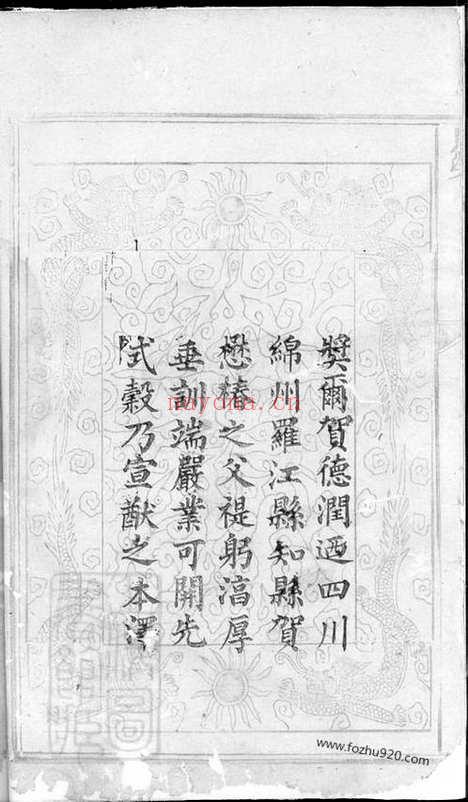 奨爾賀德潤廼四川
綿州羅江縣知縣賀
懋椿之父禔躬湻厚
垂訓端嚴業可開先
式穀乃宣猷之本澤
nayona.cn
www.fozhu920.com